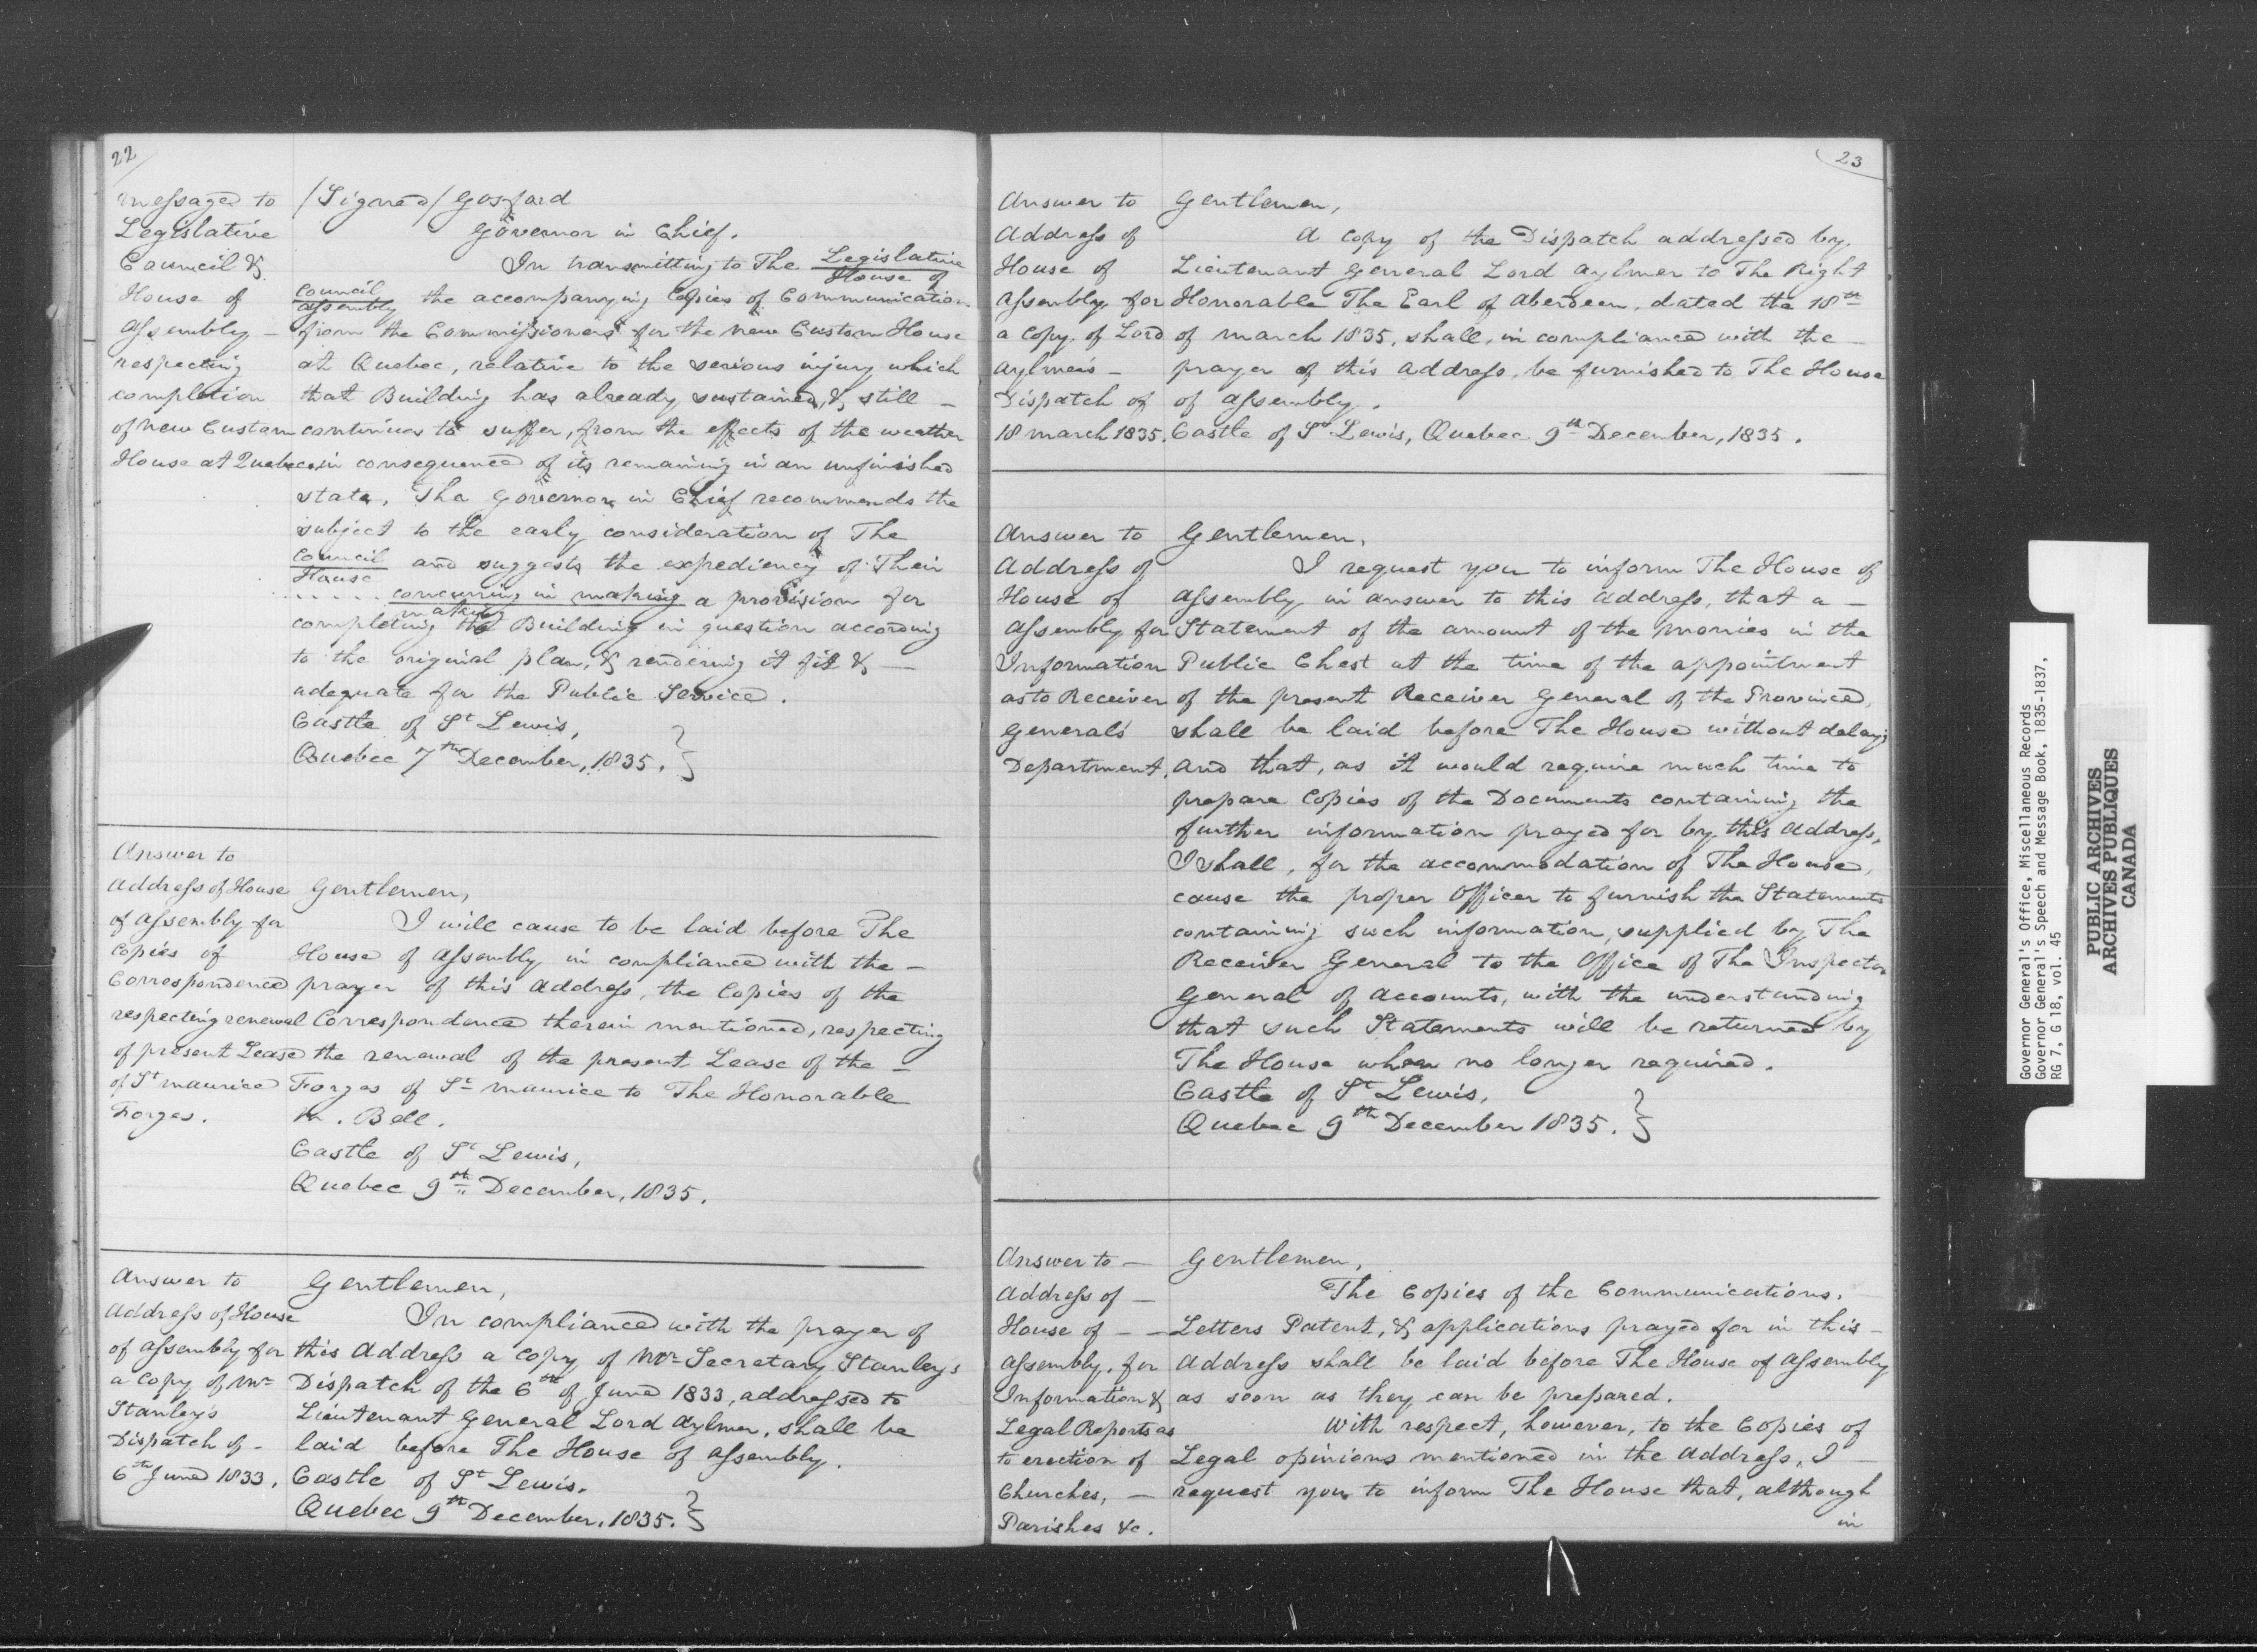 22
Messages to
Legislative
Council &
House of
Assembly –
respecting
completion
of New Custom
House at Quebec
/Signed/ Gosford
Governor in Chief.
In transmitting to The Legislative
House of
Council
Assembly the accompanying Copies of Communication
from the Commissioners for the new Custom House
at Quebec, relative to the serious injury which
that Building has already sustained, & still –
continues to suffer, from the effects of the weather
in consequence of its remaining in an unfinished
state, The Governor in Chief recommends the
subject to the early consideration of The
Council
House and suggests the expediency of Their
..... concurring in making a provision for
making
completing the Building in question according
to the original plan, & rendering it fit & –
adequate for the Public Service.
Castle of St Lewis,
Quebec 7th December, 1835. }
Answer to
Address of House
of Assembly for
Copies of
Correspondence
respecting renewal
of present Lease
of St Maurice
Forges.
Gentlemen,
I will cause to be laid before The
House of Assembly in compliance with the –
prayer of this Address, the Copies of the
Correspondence therein mentioned, respecting
the renewal of the present Lease of the –
Forges of St Maurice to The Honorable
M. Bell.
Castle of St Lewis,
Quebec 9th December, 1835.
Answer to
Address of House
of Assembly for
a Copy of Mr
Stanley's
Dispatch of –
6th June 1833.
Gentlemen,
In compliance with the prayer of
this Address a Copy of Mr Secretary Stanley's
Dispatch of the 6th of June 1833, addressed to
Lieutenant General Lord Aylmer, shall be
laid before The House of Assembly.
Castle of St Lewis.
Quebec 9th December, 1835. }
23
Answer to
Address of
House of
Assembly for
a Copy of Lord
Aylmer's –
Dispatch of
18 March 1835.
Gentlemen,
A Copy of the Dispatch addressed by
Lieutenant General Lord Aylmer to The Right
Honorable The Earl of Aberdeen, dated the 18th
of March 1835, shall, in compliance with the –
prayer of this Address, be furnished to The House
of Assembly.
Castle of St Lewis, Quebec 9th December, 1835.
Answer to
Address of
House of
Assembly for
Information
as to Receiver
General's
Department.
Gentlemen,
I request you to inform The House of
Assembly in answer to this Address, that a –
Statement of the amount of the Monies in the
Public Chest at the time of the appointment
of the present Receiver General of the Province,
shall be laid before The House without delay;
and that, as it would require much time to
prepare Copies of the Documents containing the
further information prayed for by this Address,
I shall, for the accommodation of The House,
cause the proper Officer to furnish the Statements
containing such information, supplied by The
Receiver General to the Office of The Inspector
General of Accounts, with the understanding
that such Statements will be returned by
The House when no longer required.
Castle of St Lewis,
Quebec 9th December 1835. }
Answer to –
Address of –
House of – –
Assembly for
Information &
Legal Reports as
to erection of
Churches, –
Parishes &c.
Gentlemen,
The Copies of the Communications,
Letters Patent, & applications prayed for in this –
Address shall be laid before The House of Assembly
as soon as they can be prepared.
With respect, however, to the Copies of
Legal opinions mentioned in the Address, I –
request you to inform The House that, although
in
Governor General's Office, Miscellaneous Records
Governor General's Speech and Message Book, 1835-1837,
RG 7, G 18, vol. 45
PUBLIC ARCHIVES
ARCHIVES PUBLIQUES
CANADA